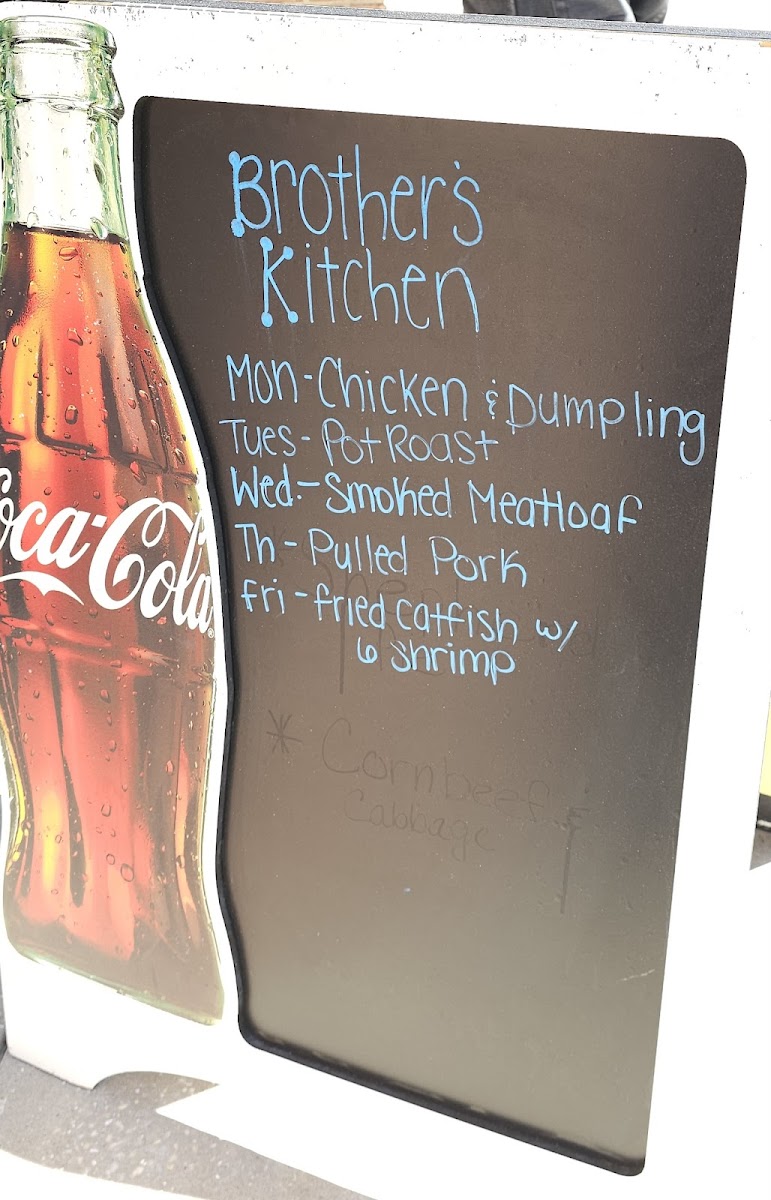 Brother's
Kitchen
Mon-Chicken & Dumpling
Tues- Pot Roast
Wed.- Smoked Meatloaf
Th - Pulled Pork
Fri - Fried Catfish w/
6 Shrimp
* Cornbeef &
Cabbage
Coca-Cola